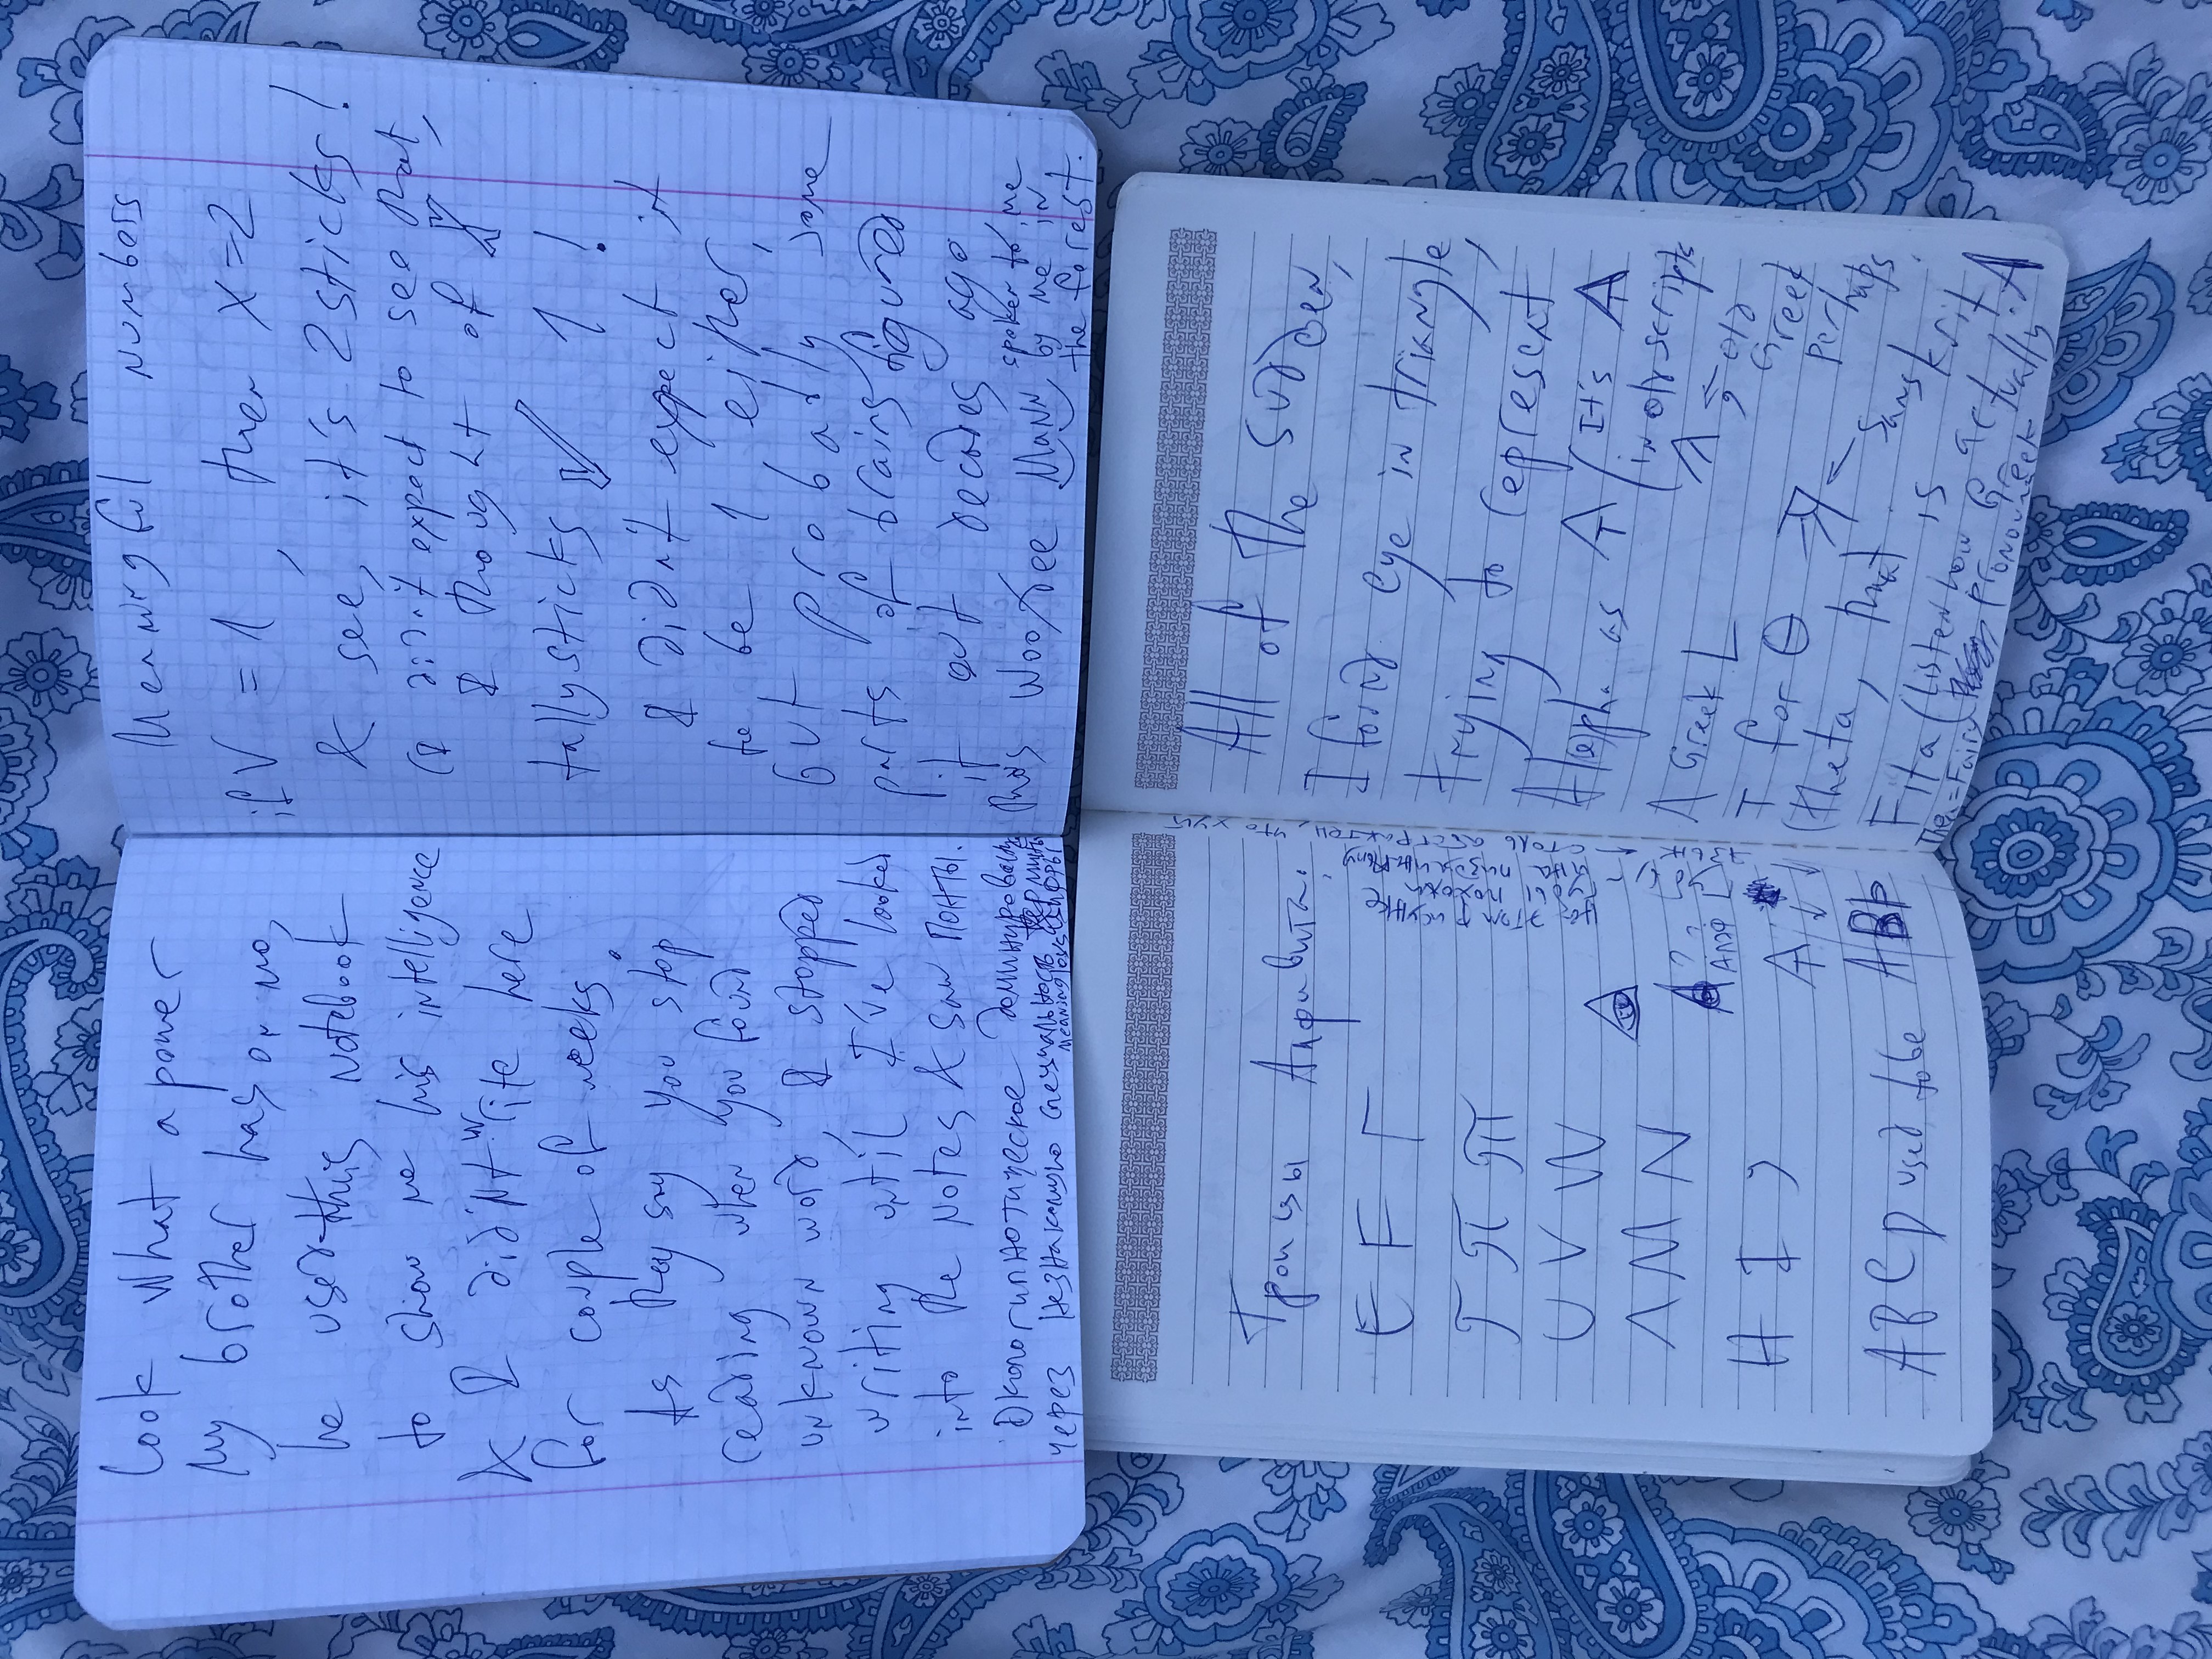 look what a power
My brother has on me,
he used this notebook
to show me his intelligence
& I didn't write here
for couple of weeks.
As they say you stop
reading when you found
unknown word, I stopped
writing until I've looked
into the notes & saw понты.
Окологипнотическое доминирование
через незнакомую специальность термины
meaningless цифры
Meaningful numbers
if V = 1, then X=2
& see, it's 2 sticks!
(I didn't expect to see that,
I thought of X
tally sticks V 1 !
I didn't expect it
to be 1 either,
but probably some
parts of brains figured
it out decades ago
this Woo/dee Mann spoken to me
by me in
the forest.
Троицы Алфавита.
E F Г
T П
U V W
Λ M N
Алэф
H I
A B C D used to be A B Ь
На этом рисунке
губы похожи
на
столь абстрактен, что хуй
язык
All of the sudden,
I found eye in triangle,
trying to represent
Al(e)pha as A (It's A
in old scripts
Λ Greek L
old
Greek
perhaps
I for Θ
(theta, that is actually
Sanskrit A
Fita (listen how Greek
pronounce